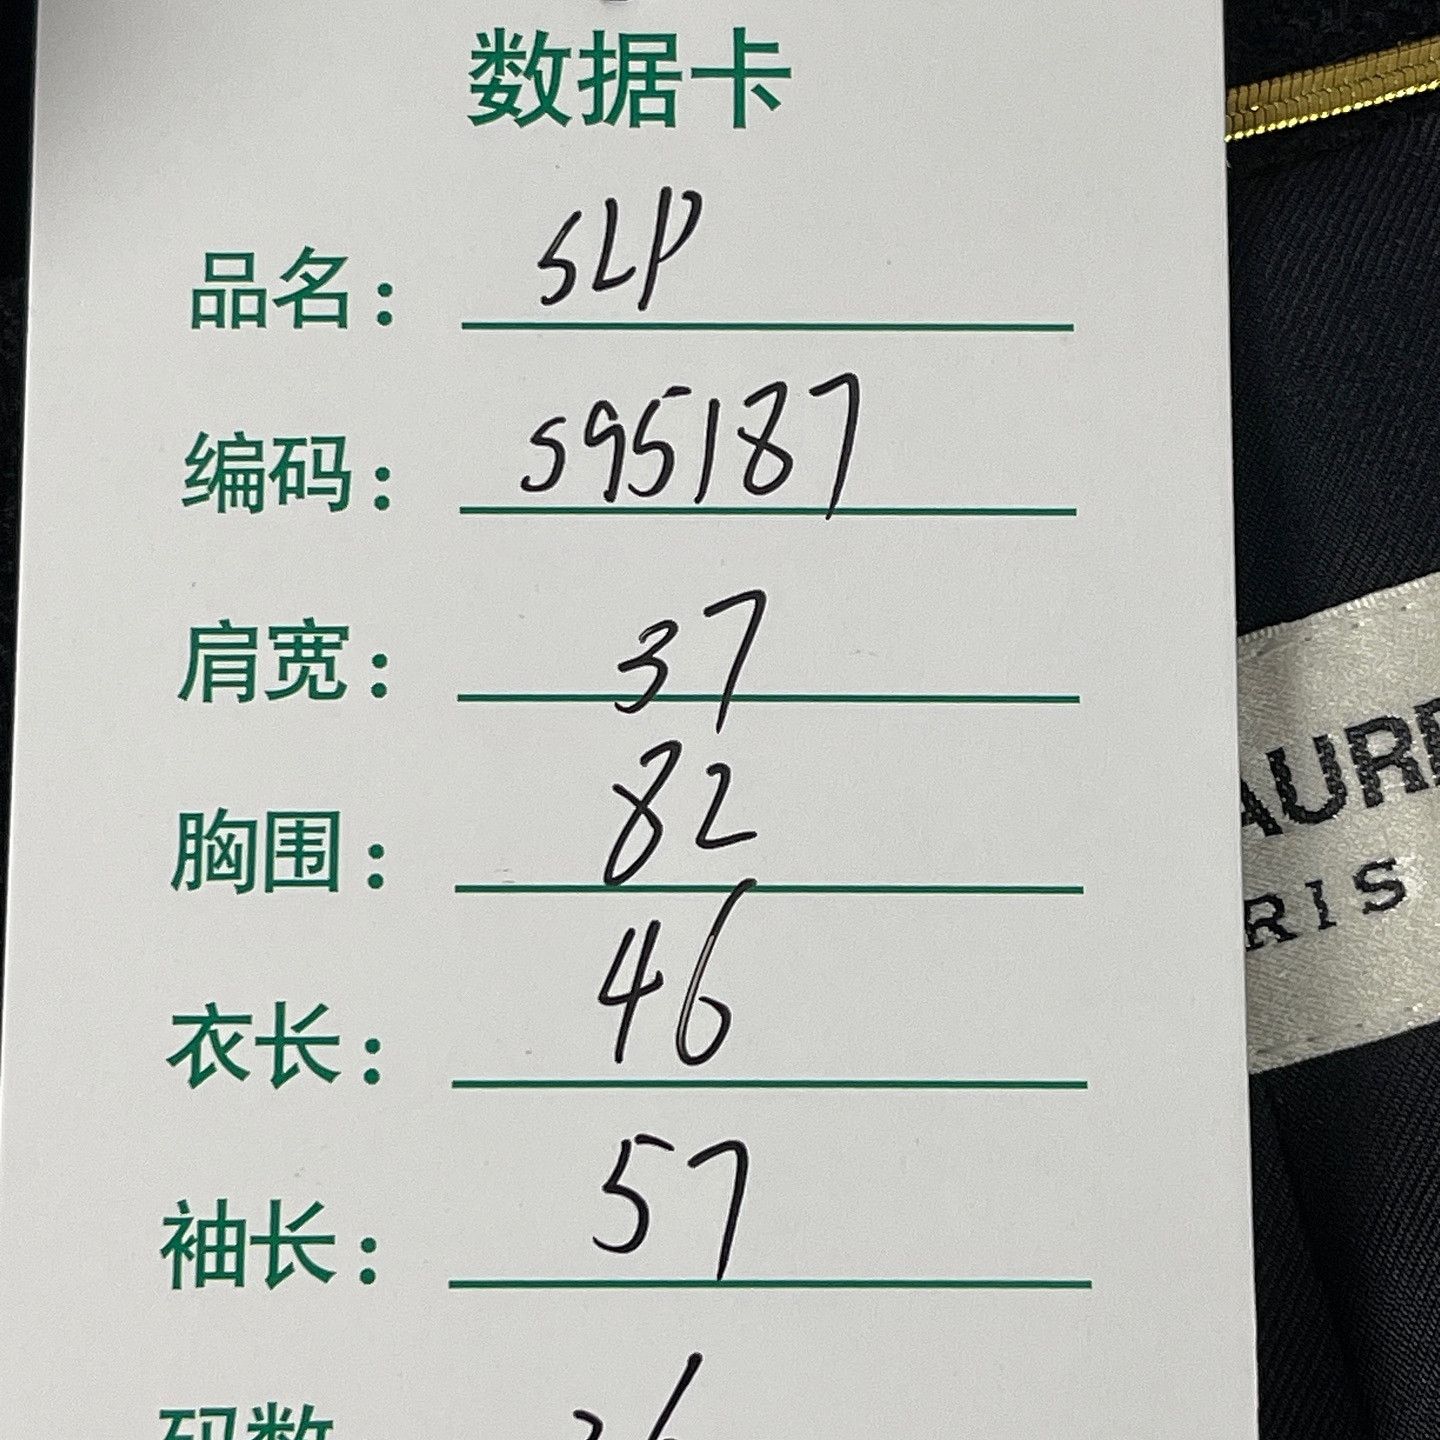 数据卡
品名： SLP
编码： S95187
肩宽： 37
胸围： 82
衣长： 46
袖长： 57
码数
AUR
RIS